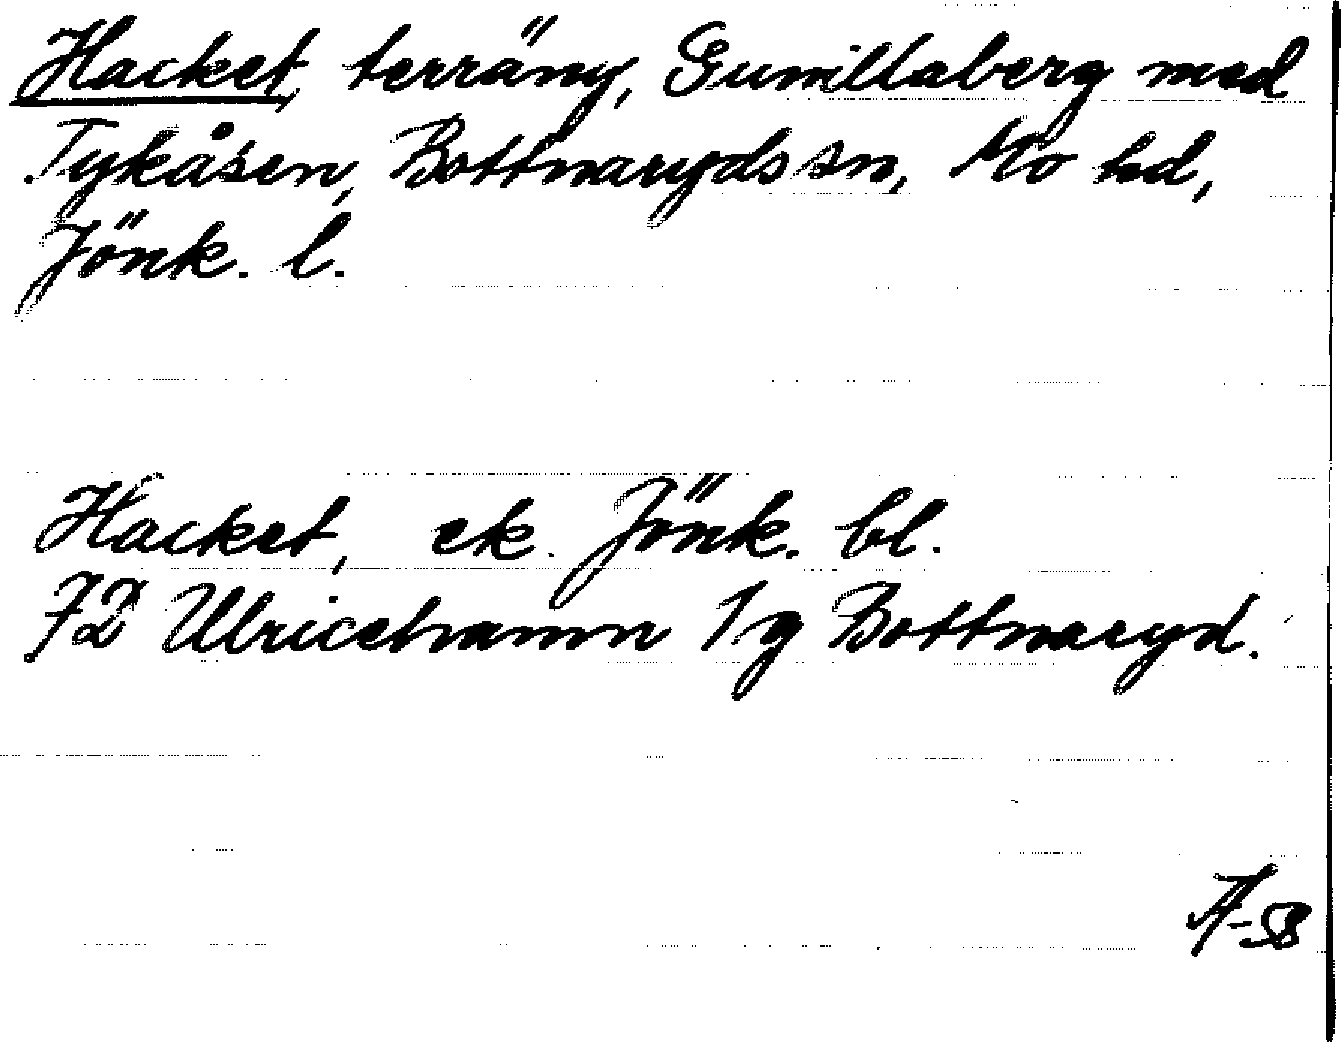 Hacket, terräng, Gunillaberg med
Tykåsen, Bottnaryds sn, Mo hd,
Jönk. l.
Hacket, ek. Jönk. bl.
7D Ulricehamn 1g Bottnaryd.